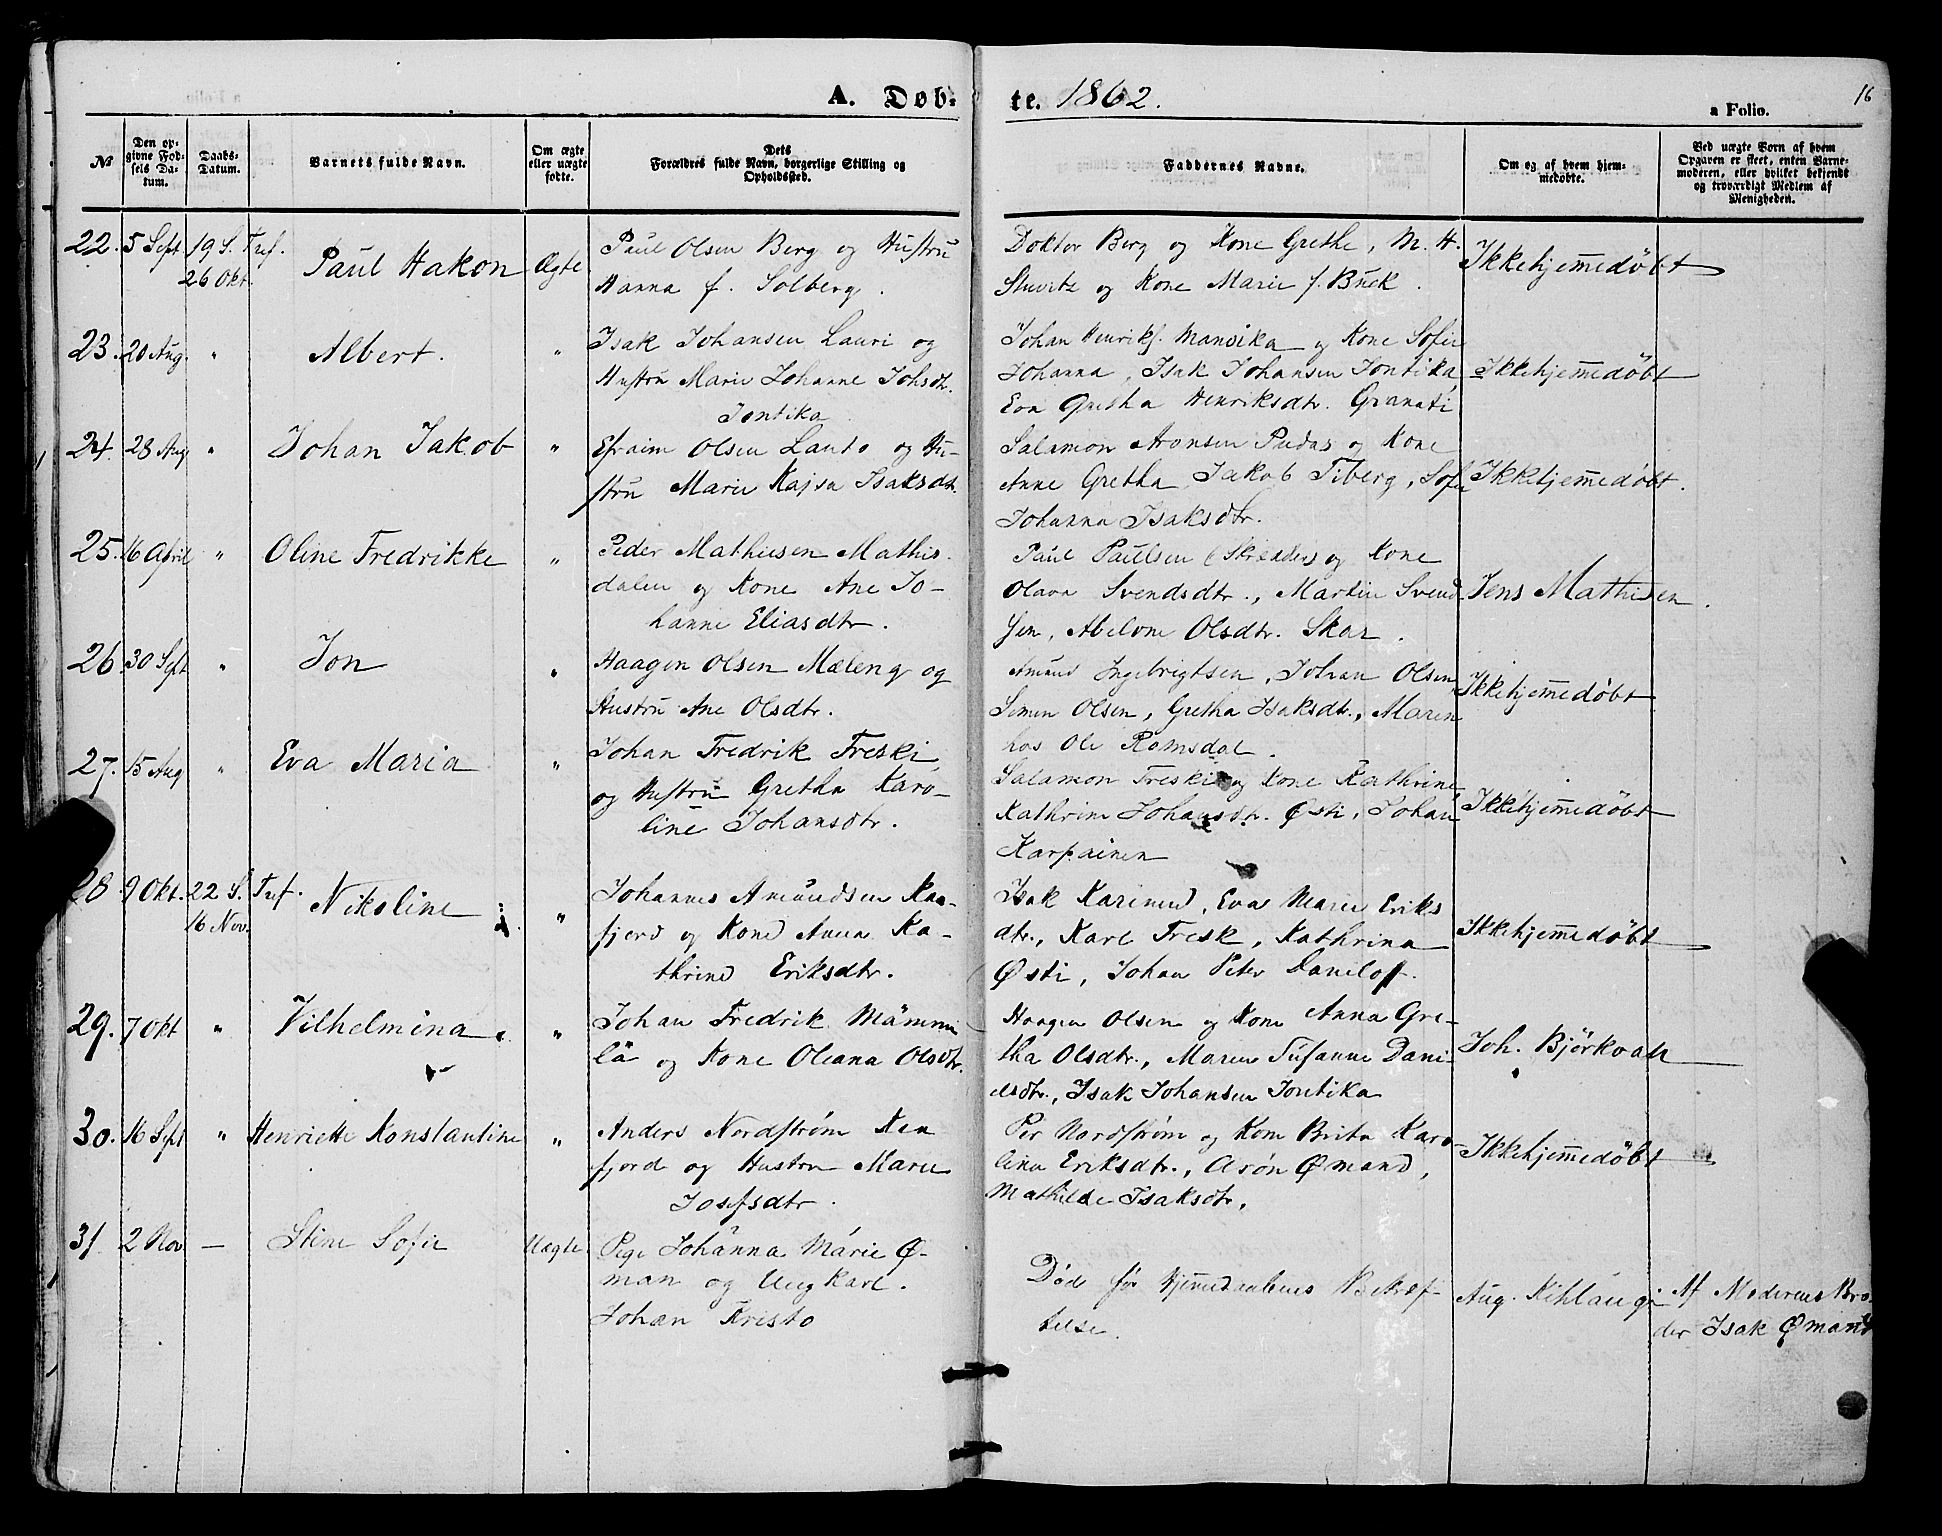 A. Døb- te. 1862.
16
a Folio.
No
Den opgivne Fødsels Datum.
Daabs-Datum.
Barnets fulde Navn.
Om ægte eller uægte fødte.
Dets Forældres fulde Navn, borgerlige Stilling og Opholdssted.
Faddernes Navne.
Om og af hvem hjemmedøbte.
Ved uægte Børn af hvem Opgaven er skeet, enten Barnemoderen, eller hvilket bekjendt og troværdigt Medlem af Menigheden.
22. 5 Sept 19 S. Tref. 26 Okt. Paul Hakon Ægte
Paul Olsen Berg og Hustru
Hanna f. Solberg.
Doktor Berg og Kone Grethe, M. H.
og Kone Marie f. Buck.
Ikkehjemmedøbt
23. 20 Aug. " Albert. "
Isak Johansen Lauri og
Hustru Marie Johanne Johsdtr.
Jontika
Johan Henriks. Mansika og Kone Sofie
Johanna, Isak Johansen Jontika
Eva Gretha Henriksdtr. Granati
Ikkehjemmedøbt
24. 28 Aug " Johan Jakob "
Efraim Olsen Lauto og Hu-
stru Marie Kajsa Isaksdt.
Salamon Aronsen Pudas og Kone
Anne Gretha, Jakob Tiberg, Sofie
Johanna Isaksdtr.
Ikkehjemmedøbt.
25. 16 April " Oline Fredrikke "
Peder Mathiesen Mathis-
dalen og Kone Ane Jo-
hanne Eliasdtr.
Paul Paulsen (Skrædder) og Kone
Olava Svendsdtr., Martin Svend
sen, Abelone Olsdtr. Skar.
Jens Mathisen.
26 30 Sept " Jon "
Haagen Olsen Mæleng og
Hustru Ane Olsdtr.
Amund Ingebrigtsen, Johan Olsen
Simen Olsen, Gretha Isaksdtr., Maren
hos Ole Romsdal.
Ikkehjemmedøbt
27. 15 Aug " Eva Maria "
Johan Fredrik Freski
og Hustru Gretha Karo-
line Johansdtr.
Salamon Freski og Kone Kathrine
Kathrine Johansdtr. Østi, Johan
Karpainen
Ikkehjemmedøbt
28. 9 Okt. 22 S. Tref. 16 Nov. Nikoline "
Johannes Amundsen Kaa-
fjord og Kone Anna Ka-
thrine Eriksdtr.
Isak Karinen, Eva Marie Eriks
dtr., Karl Fresk, Kathrina
Østi, Johan Peter Danilof.
Ikkehjemmedøbt
29. 7 Okt " Vilhelmina "
Johan Fredrik Mämmi
lä og Kone Oleana Olsdtr.
Haagen Olsen og Kone Anna Gre-
tha Olsdtr., Maren Susanne Dani-
elsdtr., Isak Johansen Jontika
Joh. Björkvall
30. 16 Sept " Henriette Konstantine "
Anders Nordstrøm Kaa
fjord og Hustru Marie
Josefsdtr.
Per Nordstrøm og Kone Brita Karo-
lina Eriksdtr., Aron Ømand,
Mathilde Isaksdtr.
Ikkehjemmedøbt
31 2 Nov — Stine Sofie Uægte
Pige Johanna Marie Ø-
man og Ungkarl.
Johan Kristo
Død før Hjemmedaabens Bekræf-
telse.
Aug. Kihlangi
Af Moderens Bro-
der Isak Ømand